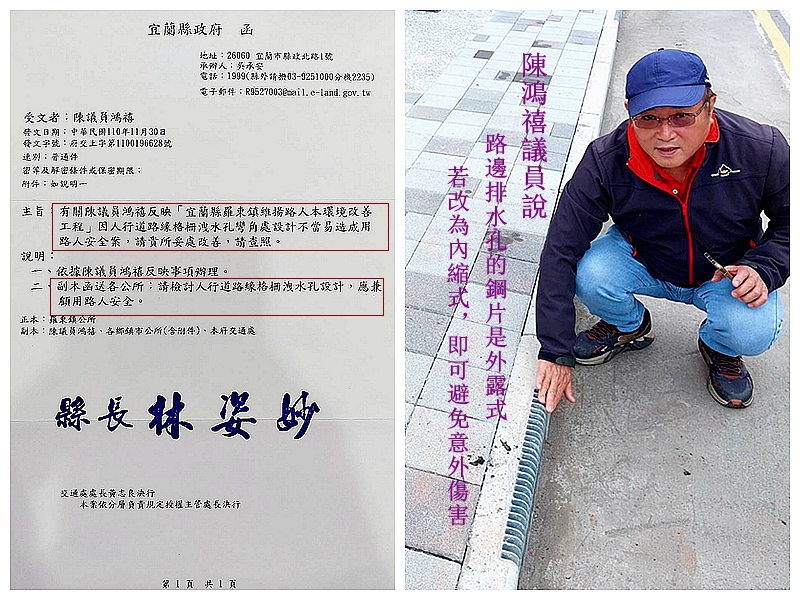 宜蘭縣政府　函
地址：26060 宜蘭市縣政北路1號
承辦人：吳承安
電話：1999(縣外請撥03-9251000分機2235)
電子郵件：R9527003@mail.e-land.gov.tw
受文者：陳議員鴻禧
發文日期：中華民國110年11月30日
發文字號：府交土字第1100196628號
速別：普通件
密等及解密條件或保密期限：
附件：如說明一
主旨：有關陳議員鴻禧反映「宜蘭縣羅東鎮維揚路人本環境改善
工程」因人行道路緣格柵洩水孔彎角處設計不當易造成用
路人安全案，請貴所妥處改善，請查照。
說明：
一、依據陳議員鴻禧反映事項辦理。
二、副本函送各公所：請檢討人行道路緣格柵洩水孔設計，應兼
顧用路人安全。
正本：羅東鎮公所
副本：陳議員鴻禧、各鄉鎮市公所(含附件)、本府交通處
縣長 林姿妙
交通處處長黃志良決行
本案依分層負責規定授權主管處長決行
第1頁 共1頁
陳鴻禧議員說
路邊排水孔的鋼片是外露式
若改為內縮式，即可避免意外傷害